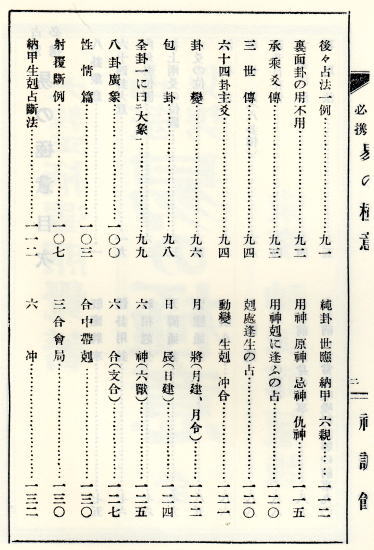 必携 易の極意
二
神誠館
後々占法一例……九一
裏面卦の用不用……九二
承乘爻傳……九三
三世傳……九四
六十四卦主爻……九四
卦變……九六
包卦……九八
全卦一に曰「大象」……九九
八卦廣象……一〇〇
性情篇……一〇三
射覆斷例……一〇七
納甲生剋占斷法……一一二
純卦 世應 納甲 六親……一一二
用神 原神 忌神 仇神……一一五
用神剋に逢ふの占……一二〇
剋處逢生の占……一二〇
動變 生剋 冲合……一二一
月將(月建、月令)……一二二
日辰(日建)……一二四
六神(六獸)……一二五
六合(支合)……一二七
合中帶剋……一三〇
三合會局……一三〇
六冲……一三二